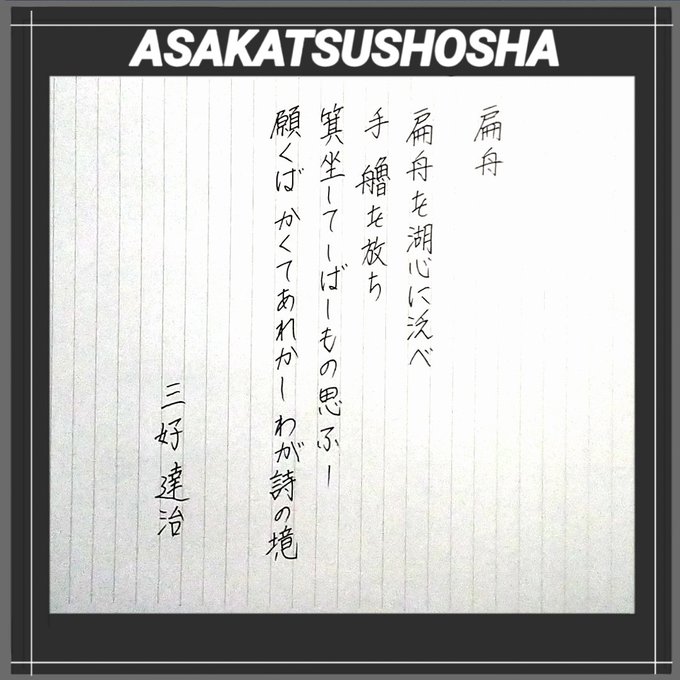 ASAKATSUSHOSHA
扁舟
扁舟を湖心に泛べ
手艪を放ち
箕坐してしばしもの思ふ―
願くば かくてあれかし わが詩の境
三好達治